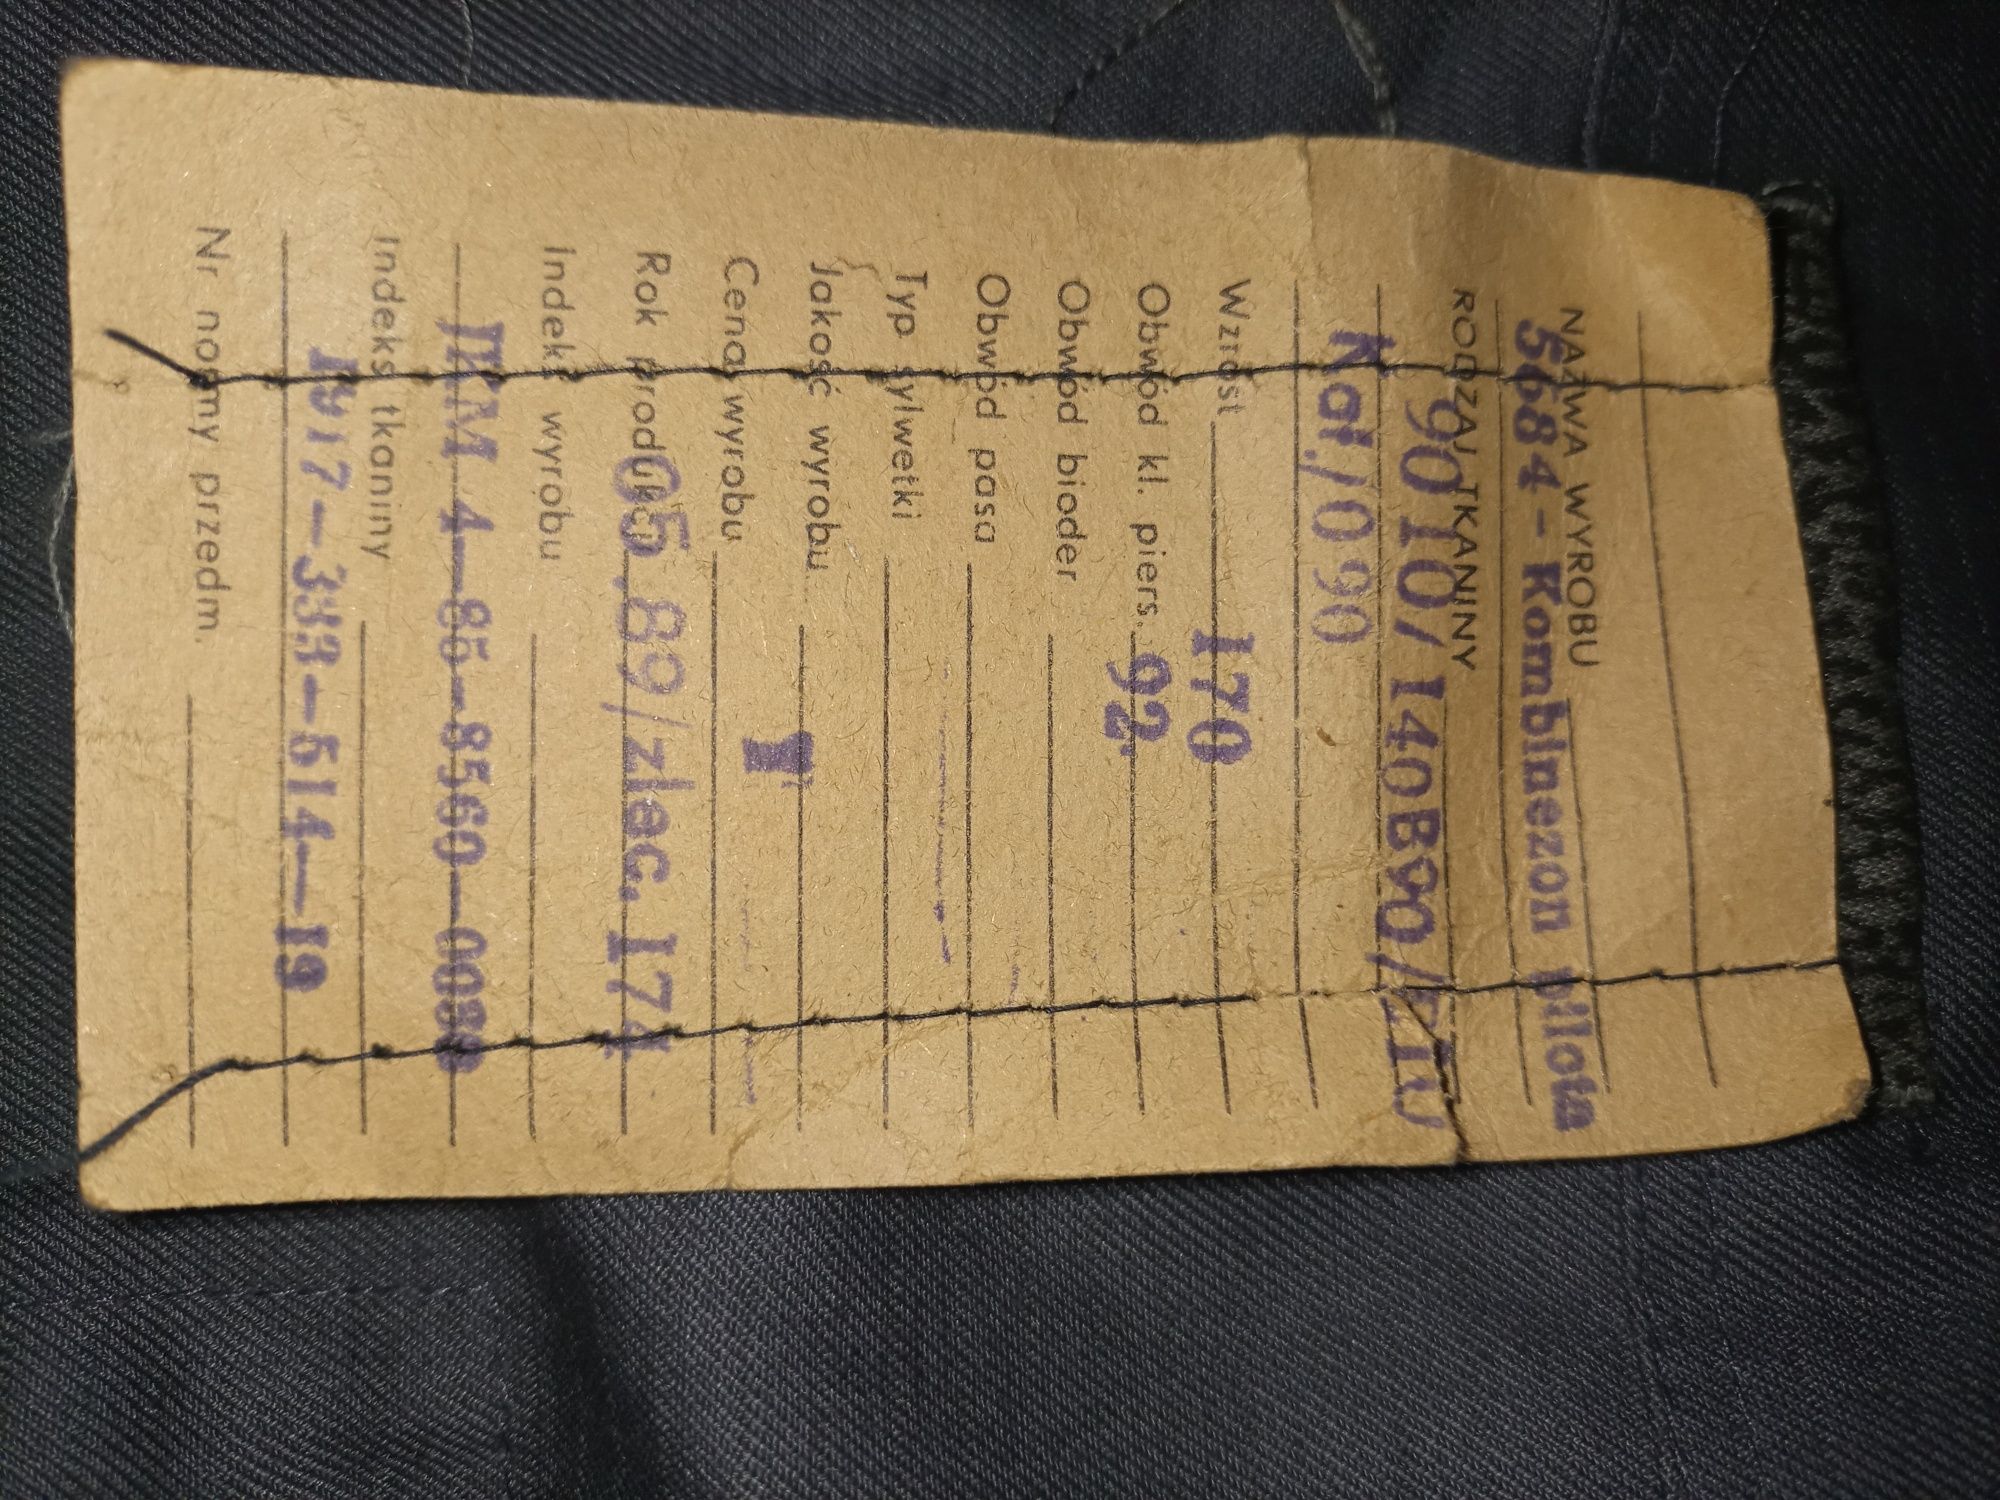 NAZWA WYROBU
5684 - Kombinezon pilota
RODZAJ TKANINY
9010/140B90/ZIU
Kat./090
Wzrost 170
Obwód kl. piers. 92
Obwód bioder
Obwód pasa
Typ sylwetki
Jakość wyrobu I
Cena wyrobu
Rok produkcji 05.89/zlec. 174
Indeks wyrobu
JKM 4-85-8560-0088
Indeks tkaniny
1917-333-514-19
Nr normy przedm.